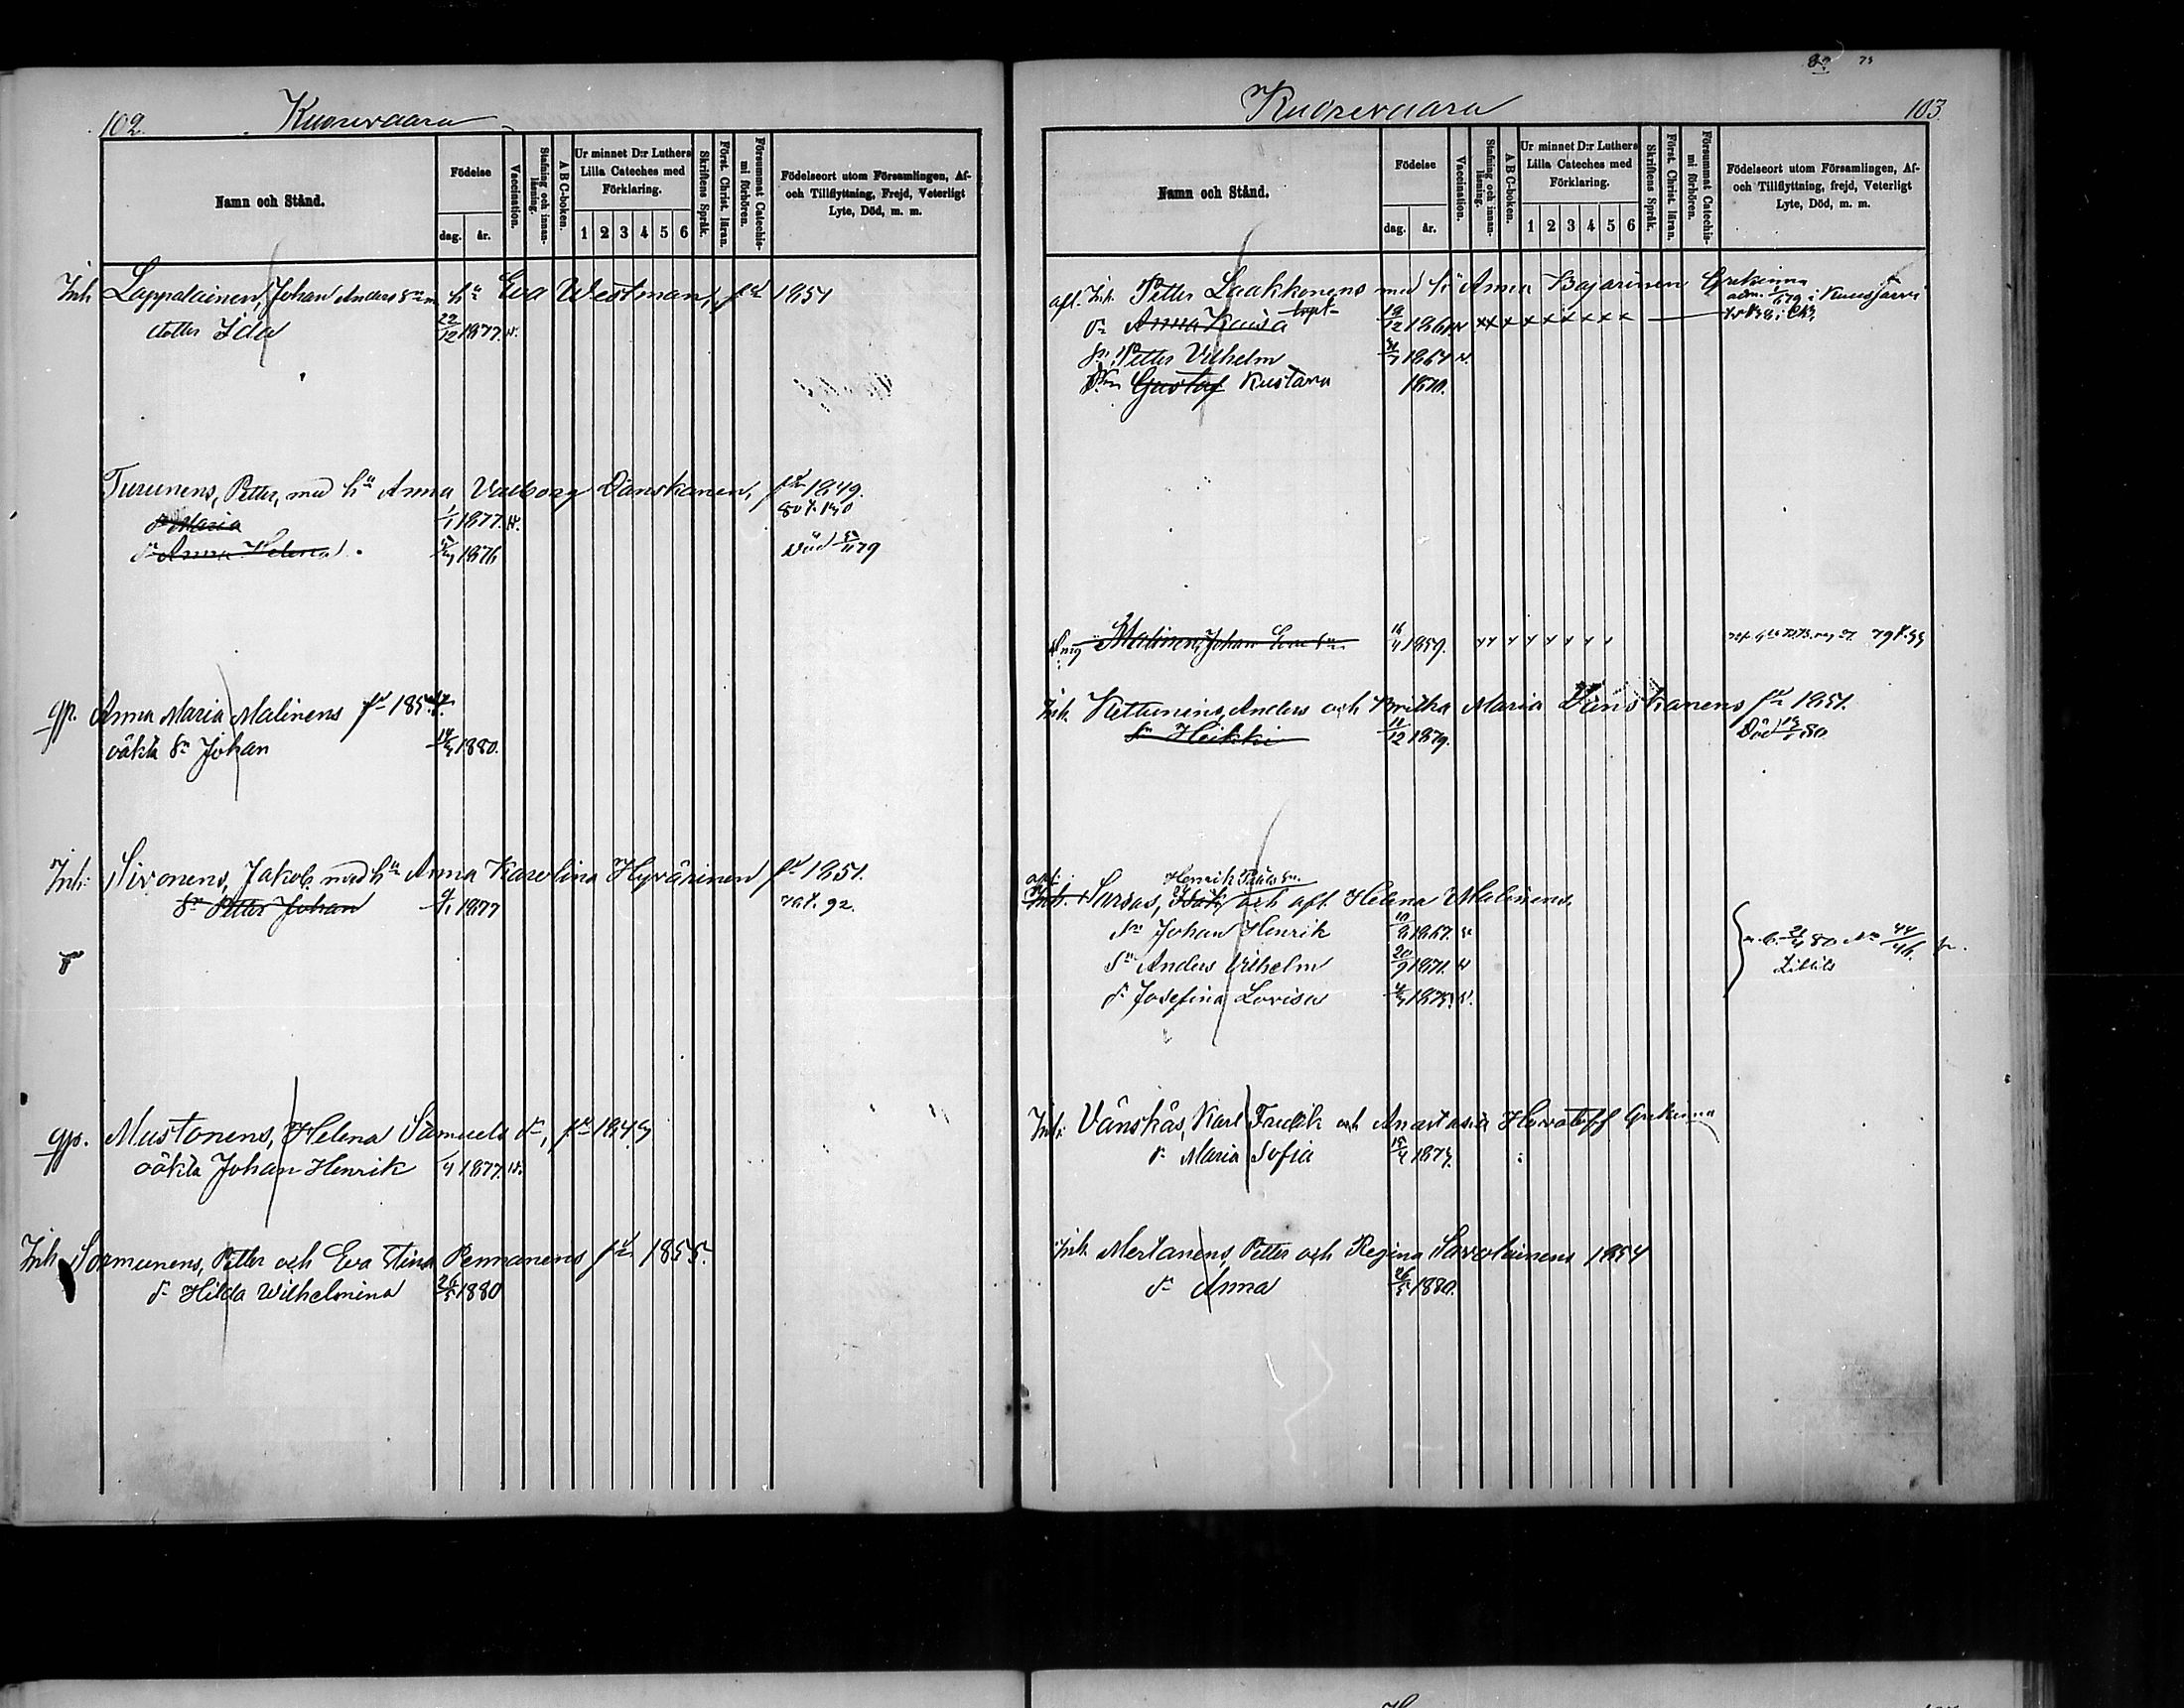 102. Kuorevaara
Namn och Stånd.
Födelse
dag. år.
Vaccination.
Stafning och innan-läsning.
A B C-boken.
Ur minnet D:r Luthers Lilla Cateches med Förklaring.
1 2 3 4 5 6
Skriftens Språk.
Först. Christ. läran.
Försummat Catechis-mi förhören.
Födelseort utom Församlingen, Af- och Tillflyttning, Frejd, Veterligt Lyte, Död, m. m.
Inh Lappalainen, Johan Anders sn hu Eva Westman, fd 1851
dotter Ida 22/12 1877. v.
Turunens, Petter, med hu Anna Valborg Vänskanen, fd 1849.
dr Maria 1/1 1877. v.
dr Anna Helena 1876 Död 79
gp. Anna Maria Malinens fd 185
oäkta Sn Johan 1880.
Inh: Sivonens, Jakob med hu Anna Karolina Hyvärinen fd 1851.
Sn Petter Johan 1877 92.
gp. Mustonens, Helena Samuels dr, fd 1849
oäkta Johan Henrik 1877. v.
Inh Sormunens, Petter och Eva Stina Pennanens fd 1855.
dr Hilda Wilhelmina 1880
Kuorevaara 103.
Namn och Stånd.
Födelse
dag. år.
Vaccination.
Stafning och innan-läsning.
A B C-boken.
Ur minnet D:r Luthers Lilla Cateches med Förklaring.
1 2 3 4 5 6
Skriftens Språk.
Först. Christ. läran.
Försummat Catechis-mi förhören.
Födelseort utom Församlingen, Af- och Tillflyttning, frejd, Veterligt Lyte, Död, m. m.
afl. Inh. Petter Laakkonens med hu Anna Bajarinen Grekinna
adm. 79 i Kuusjärvi
dr Anna Kaisa 19/12 1861 v x x x x x x x x x
sn Petter Vilhelm 1864 v.
Gustaf Kustava 1870.
Malinen, Johan 16/4 1859.
Inh. Kettunens, Anders och Britha Maria Vänskanens fd 1851.
Sn Heikki 11/12 1879. Död 80.
Henrik Påls sn.
Sarsas, och afl. Helena Malinens
Sn Johan Henrik 1867. v
Sn Anders Vilhelm 20/9 1871. v
dr Josefina Lovisa 1875. v.
80 No 44/46
Libelits
Inh: Vänskäs, Karl Fredrik och Anastasia Horotoff Grekinna
dr Maria Sofia 1874.
Inh. Mertanens, Petter och Regina Savolainens 1854
dr Anna 1880.